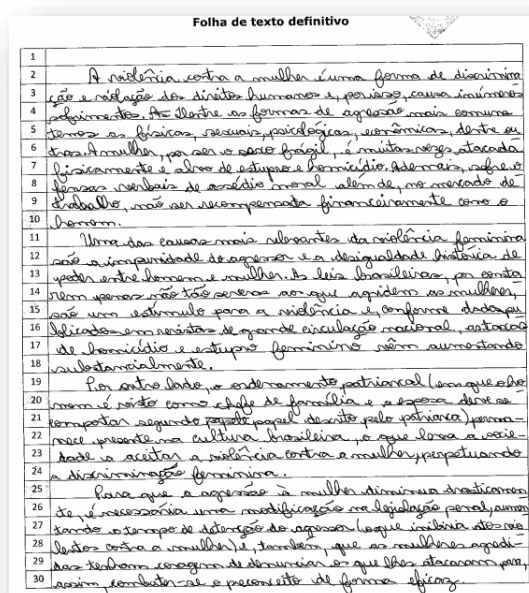 Folha de texto definitivo
1
2 A violência contra a mulher é uma forma de discrimina
3 ção e violação dos direitos humanos e, por isso, causa inúmeros
4 sofrimentos. As dentre as formas de agressão mais comuns
5 temos as físicas, sexuais, psicológicas, econômicas, dentre ou
6 tras. A mulher, por ser o sexo frágil, é muitas vezes atacada
7 fisicamente e alvo de estupro e homicídio. Ademais, sofre o
8 fensas verbais de assédio moral além de, no mercado de
9 trabalho, não ser recompensada financeiramente como o
10 homem.
11 Uma das causas mais relevantes da violência feminina
12 são a impunidade do agressor e a desigualdade histórica de
13 poder entre homem e mulher. As leis brasileiras, por conta
14 rem penas não tão severas aos que agridem as mulheres,
15 são um estímulo para a violência e, conforme dados pu
16 blicados em revistas de grande circulação nacional, as taxas
17 de homicídio e estupro feminino vêm aumentando
18 substancialmente.
19 Por outro lado, o ordenamento patriarcal (em que o ho
20 mem é visto como chefe de família e a esposa deve se
21 comportar segundo papel descrito pelo patriarca), perma
22 nece presente na cultura brasileira, o que leva a socie
23 dade a aceitar a violência contra a mulher, perpetuando
24 a discriminação feminina.
25 Para que a agressão à mulher diminua drasticamen
26 te, é necessária uma modificação na legislação penal, aumen
27 tando o tempo de detenção do agressor (o que inibiria atos vio
28 lentos contra a mulher) e, também, que as mulheres agredi-
29 das tenham coragem de denunciar os que lhes atacaram para,
30 assim, combater-se o preconceito de forma eficaz.